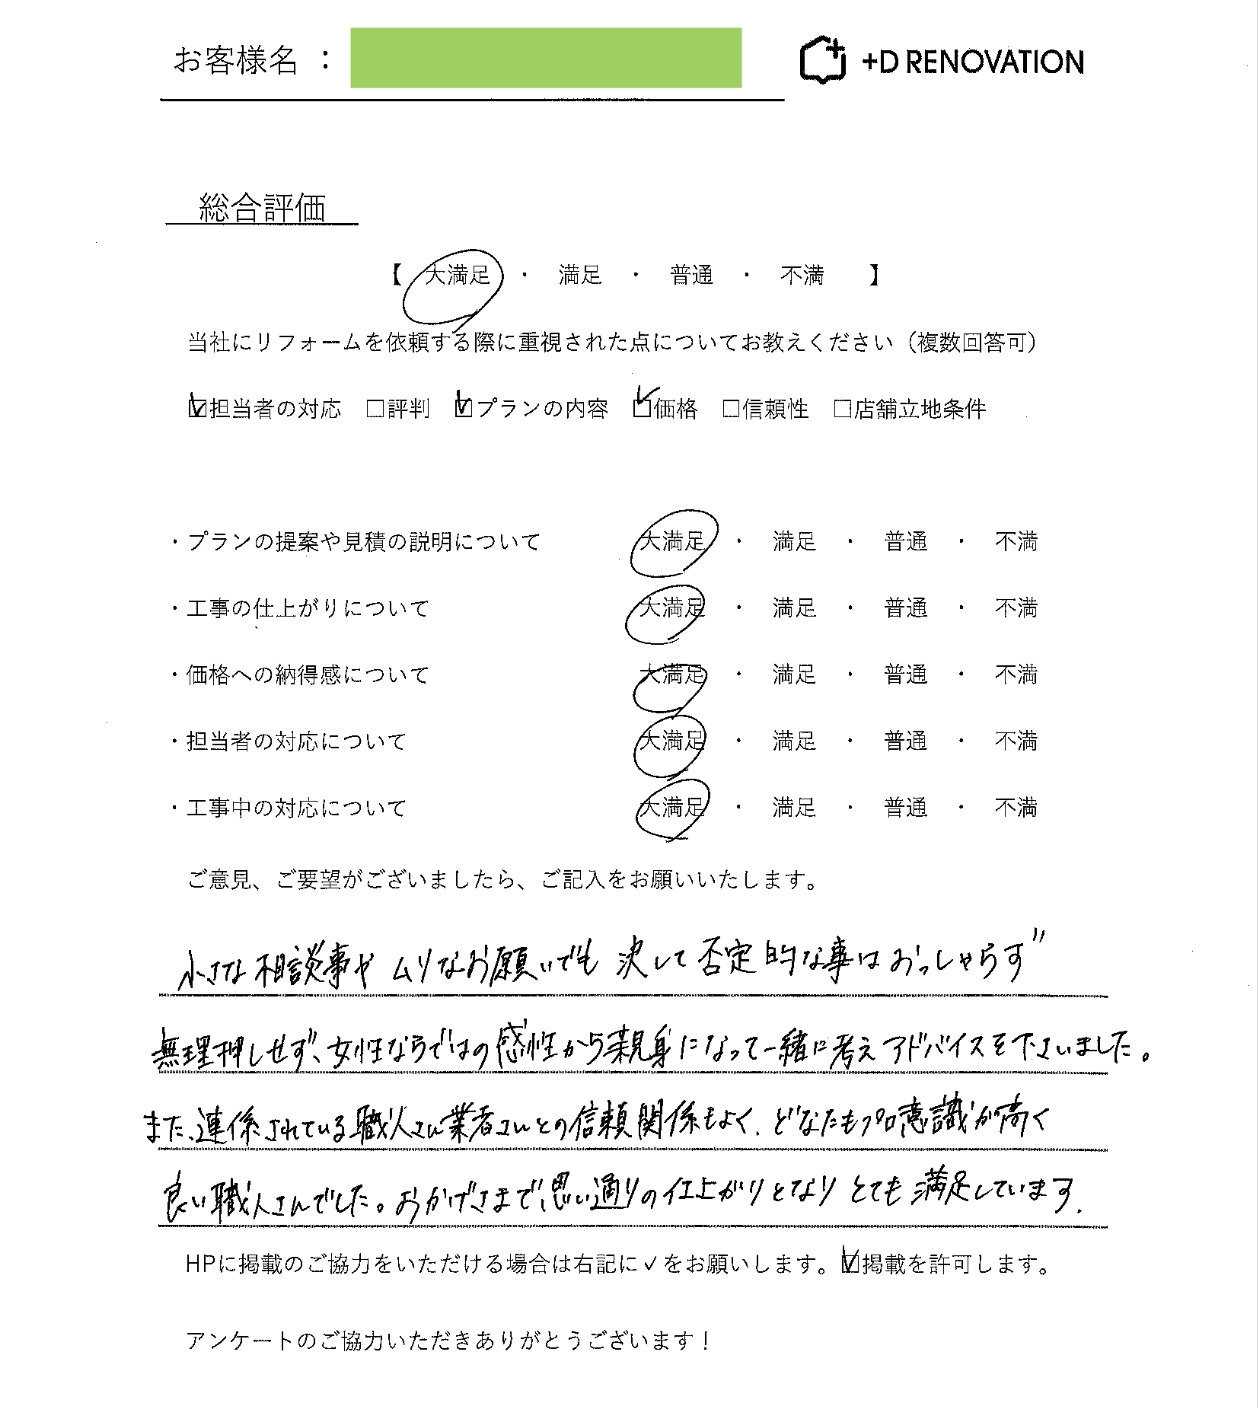 お客様名 : +D RENOVATION
総合評価
【 大満足 ・ 満足 ・ 普通 ・ 不満 】
当社にリフォームを依頼する際に重視された点についてお教えください（複数回答可）
☑担当者の対応 □評判 ☑プランの内容 ☑価格 □信頼性 □店舗立地条件
・プランの提案や見積の説明について 大満足 ・ 満足 ・ 普通 ・ 不満
・工事の仕上がりについて 大満足 ・ 満足 ・ 普通 ・ 不満
・価格への納得感について 大満足 ・ 満足 ・ 普通 ・ 不満
・担当者の対応について 大満足 ・ 満足 ・ 普通 ・ 不満
・工事中の対応について 大満足 ・ 満足 ・ 普通 ・ 不満
ご意見、ご要望がございましたら、ご記入をお願いいたします。
小さな相談事や ムリなお願いでも 決して否定的な事はおっしゃらず
無理押しせず、女性ならではの感性から親身になって一緒に考えアドバイスを下さいました。
また、連係されている職人さん業者さんとの信頼関係もよく、どなたもプロ意識が高く
良い職人さんでした。おかげさまで思い通りの仕上がりとなり とても満足しています.
HPに掲載のご協力をいただける場合は右記に✓をお願いします。☑掲載を許可します。
アンケートのご協力いただきありがとうございます！